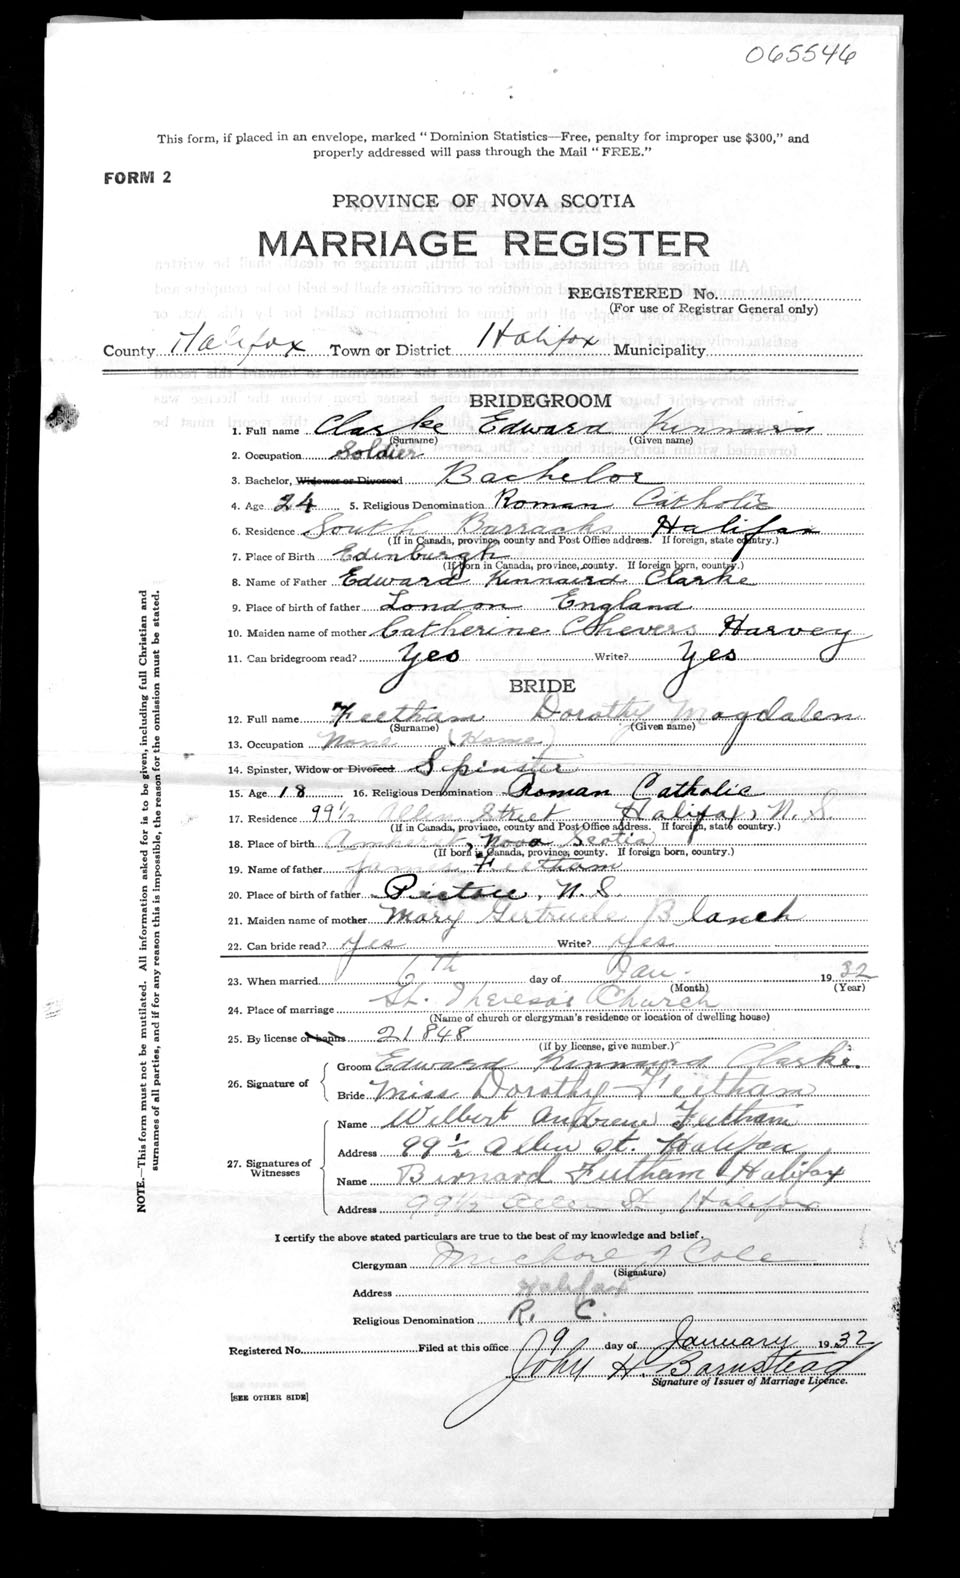 065546
This form, if placed in an envelope, marked "Dominion Statistics—Free, penalty for improper use $300," and
properly addressed will pass through the Mail "FREE."
FORM 2
PROVINCE OF NOVA SCOTIA
MARRIAGE REGISTER
REGISTERED No.
(For use of Registrar General only)
County Halifax Town or District Halifax Municipality
BRIDEGROOM
1. Full name Clarke Edward Kinnaird
(Surname) (Given name)
2. Occupation Soldier
3. Bachelor, Widower or Divorced Bachelor
4. Age 24 5. Religious Denomination Roman Catholic
6. Residence South Barracks Halifax
(If in Canada, province, county and Post Office address. If foreign, state country.)
7. Place of Birth Edinburgh
(If born in Canada, province, county. If foreign born, country.)
8. Name of Father Edward Kinnaird Clarke
9. Place of birth of father London England
10. Maiden name of mother Catherine Chevers Harvey
11. Can bridegroom read? Yes Write? Yes
BRIDE
12. Full name Feetham Dorothy Magdalen
(Surname) (Given name)
13. Occupation None (Home)
14. Spinster, Widow or Divorced Spinster
15. Age 18 16. Religious Denomination Roman Catholic
17. Residence 99½ Allen Street Halifax, N.S.
(If in Canada, province, county and Post Office address. If foreign, state country.)
18. Place of birth Amherst, Nova Scotia
(If born in Canada, province, county. If foreign born, country.)
19. Name of father James Feetham
20. Place of birth of father Pictou, N.S.
21. Maiden name of mother Mary Gertrude Blanch
22. Can bride read? Yes Write? Yes
23. When married 6th day of Jan. 1932
(Month) (Year)
24. Place of marriage St. Theresa's Church
(Name of church or clergyman's residence or location of dwelling house)
25. By license or banns 21848
(If by license, give number.)
26. Signature of
Groom Edward Kinnaird Clarke.
Bride Miss Dorothy Feetham
27. Signatures of Witnesses
Name Wilbert Feetham
Address 99½ Allen St. Halifax
Name Bernard Feetham Halifax
Address 99½ Allen St., Halifax
I certify the above stated particulars are true to the best of my knowledge and belief.
Clergyman J Cole
(Signature)
Address Halifax
Religious Denomination R. C.
Registered No. Filed at this office 9 day of January 1932
John H. Barnstead
Signature of Issuer of Marriage Licence.
[SEE OTHER SIDE]
NOTE.—This form must not be mutilated. All information asked for is to be given, including full Christian and
surnames of all parties, and if for any reason this is impossible, the reason for the omission must be stated.